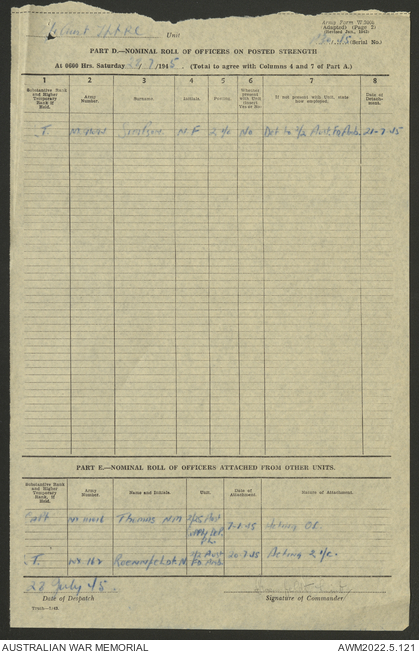 Unit
Army Form W.3008
Adapted) (Page 2)
(Revised Jan., 1943)
(Serial No.)
PART D.—NOMINAL ROLL OF OFFICERS ON POSTED STRENGTH
At 0600 Hrs. Saturday 28/7/1945. (Total to agree with Columns 4 and 7 of Part A.)
1 2 3 4 5 6 7 8
Substantive Rank and Higher Temporary Rank if Held.
Army Number.
Surname.
Initials.
Posting.
Whether present with Unit (insert Yes or No)
If not present with Unit, state how employed.
Date of Detachment.
Simpson N F 2 i/c No Det to 2/2 Aust Fd Amb 20-7-45
PART E.—NOMINAL ROLL OF OFFICERS ATTACHED FROM OTHER UNITS.
Substantive Rank and Higher Temporary Rank, if Held.
Army Number.
Name and Initials.
Unit.
Date of Attachment.
Nature of Attachment.
Capt Thomas Aust Acting OC.
2/2 Aust Fd Amb 20-7-45 Acting 2 i/c.
28 July 45.
Date of Despatch
Signature of Commander
AUSTRALIAN WAR MEMORIAL
AWM2022.5.121